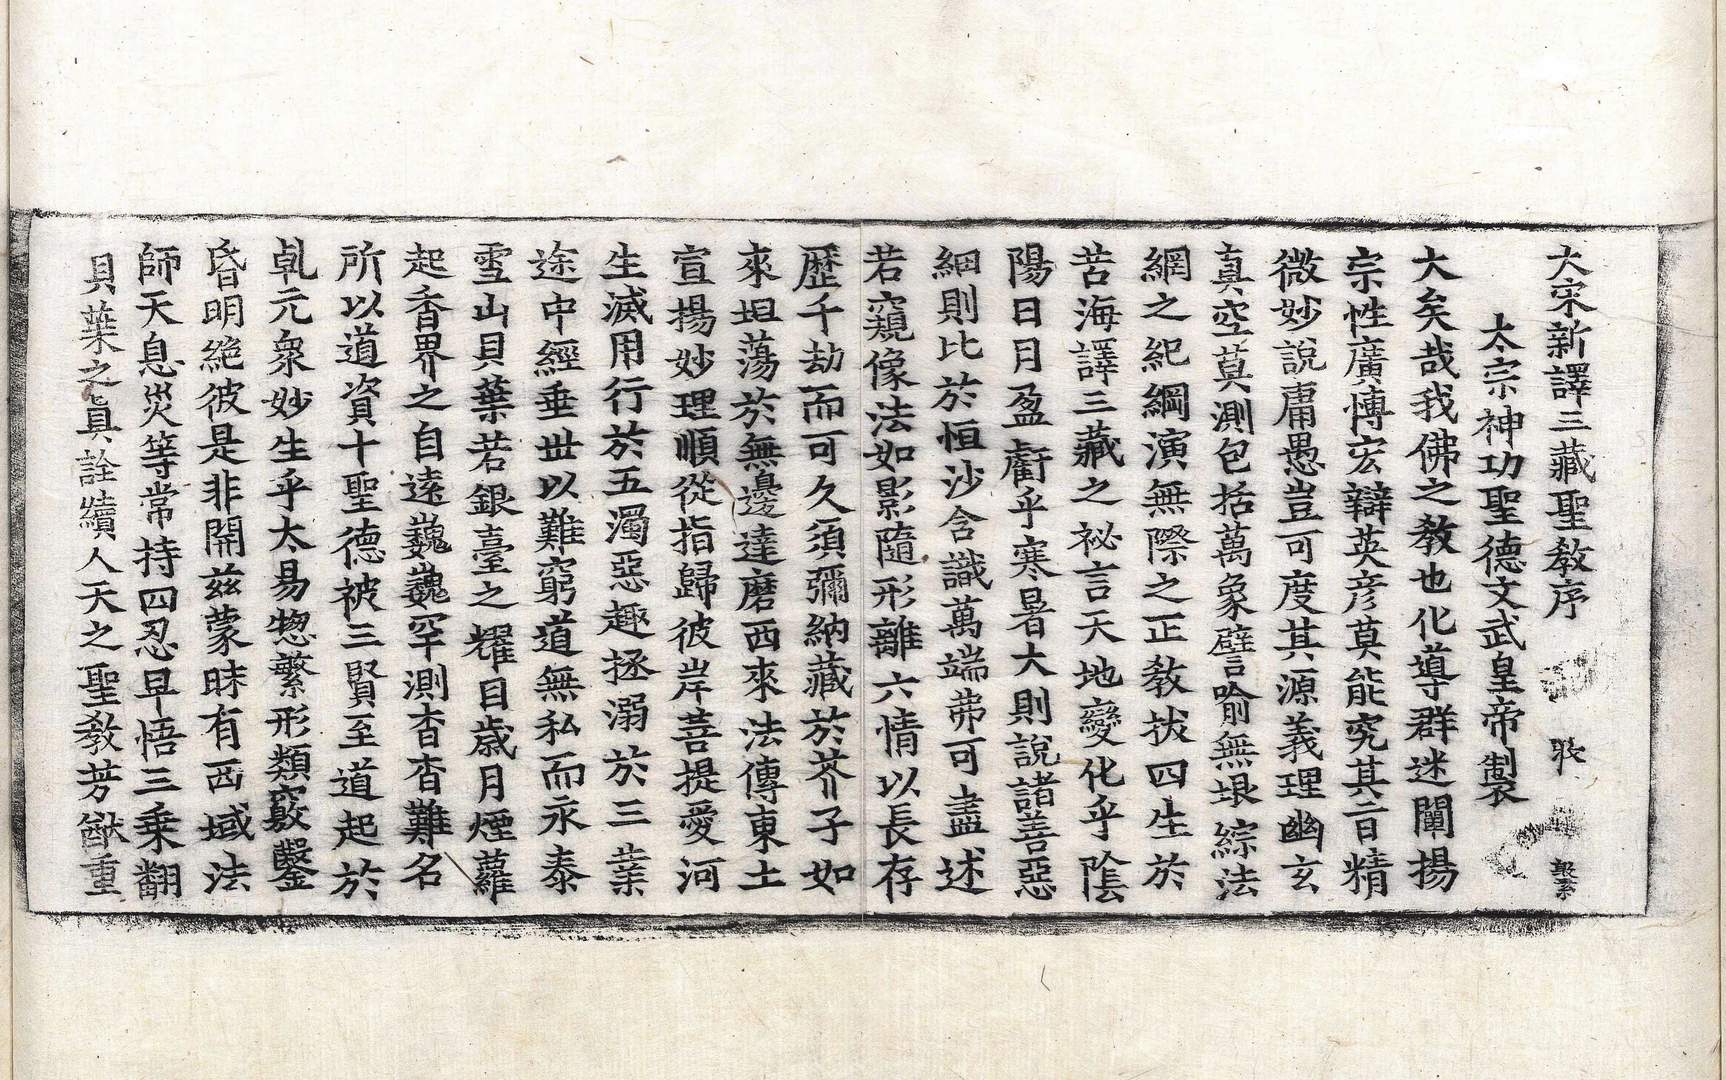 大宋新譯三藏聖教序
太宗神功聖德文武皇帝製
大矣哉我佛之教也化導群迷闡揚
宗性廣博宏辯英彦莫能究其旨精
微妙說庸愚豈可度其源義理幽玄
真空莫測包括萬象譬喻無垠綜法
網之紀綱演無際之正教拔四生於
苦海譯三藏之祕言天地變化乎陰
陽日月盈虧乎寒暑大則說諸善惡
細則比於恒沙含識萬端弗可盡述
若窺像法如影隨形離六情以長存
歷千劫而可久須彌納藏於芥子如
來坦蕩於無邊達磨西來法傳東土
宣揚妙理順從指歸彼岸菩提愛河
生滅用行於五濁惡趣拯溺於三業
途中經垂世以難窮道無私而永泰
雪山貝葉若銀臺之耀目歲月煙蘿
起香界之自遠巍巍罕測杳杳難名
所以道資十聖德被三賢至道起於
乹元衆妙生乎太易惣繁形類竅鑿
昏明絶彼是非開茲蒙昧有西域法
師天息災等常持四忍早悟三乗翻
貝葉之真詮續人天之聖教芳猷重